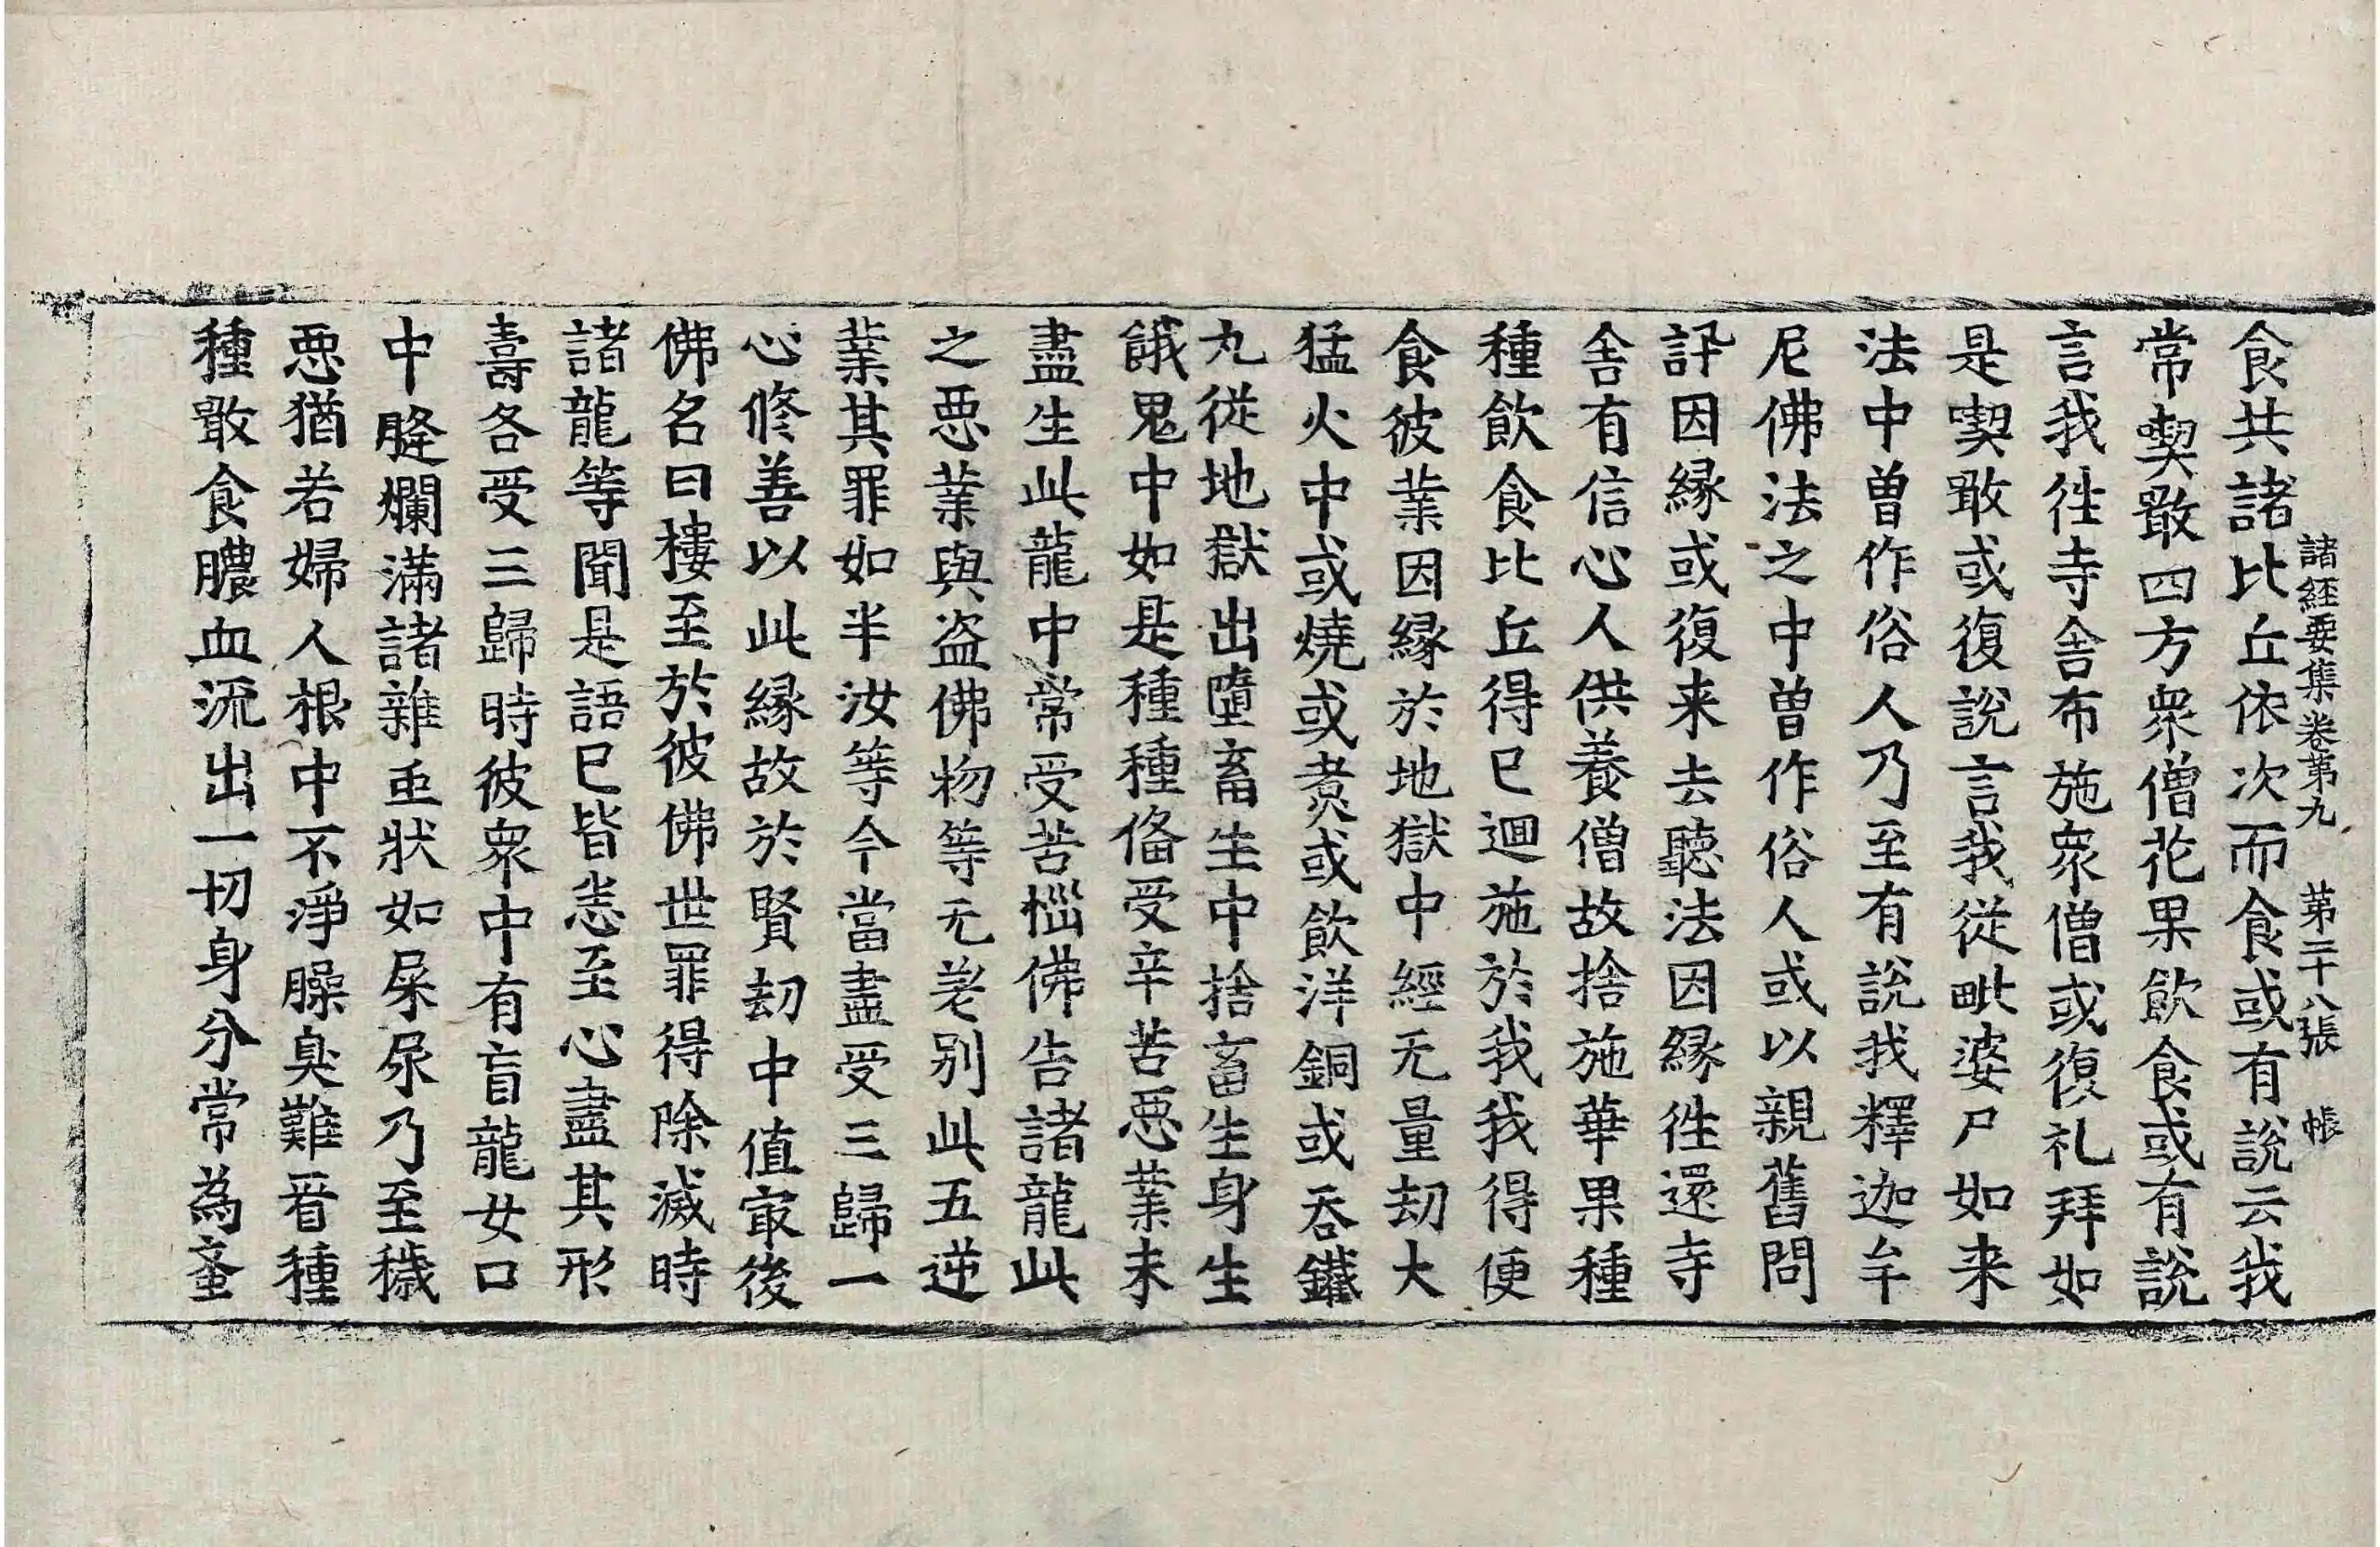 諸經要集卷第九　第二十八張　帳
食共諸比丘依次而食或有說云我
常喫噉四方衆僧花果飮食或有說
言我徃寺舍布施衆僧或復礼拜如
是喫噉或復說言我從毗婆尸如来
法中曽作俗人乃至有說我釋迦牟
尼佛法之中曽作俗人或以親舊問
訊因縁或復来去聽法因縁徃還寺
舍有信心人供養僧故捨施華果種
種飮食比丘得已迴施於我我得便
食彼業因縁於地獄中經无量劫大
猛火中或燒或煑或飮洋銅或吞鐵
丸從地獄出墮畜生中捨畜生身生
餓鬼中如是種種俻受辛苦惡業未
盡生此龍中常受苦惱佛告諸龍此
之惡業與盗佛物等无差别此五逆
業其罪如半汝等今當盡受三歸一
心修善以此縁故於賢劫中值㝡後
佛名曰樓至於彼佛世罪得除滅時
諸龍等聞是語已皆悉至心盡其形
壽各受三歸時彼衆中有盲龍女口
中膖爛滿諸雜䖝狀如屎尿乃至穢
惡猶若婦人根中不淨臊臭難看種
種噉食膿血流出一切身分常為蚉